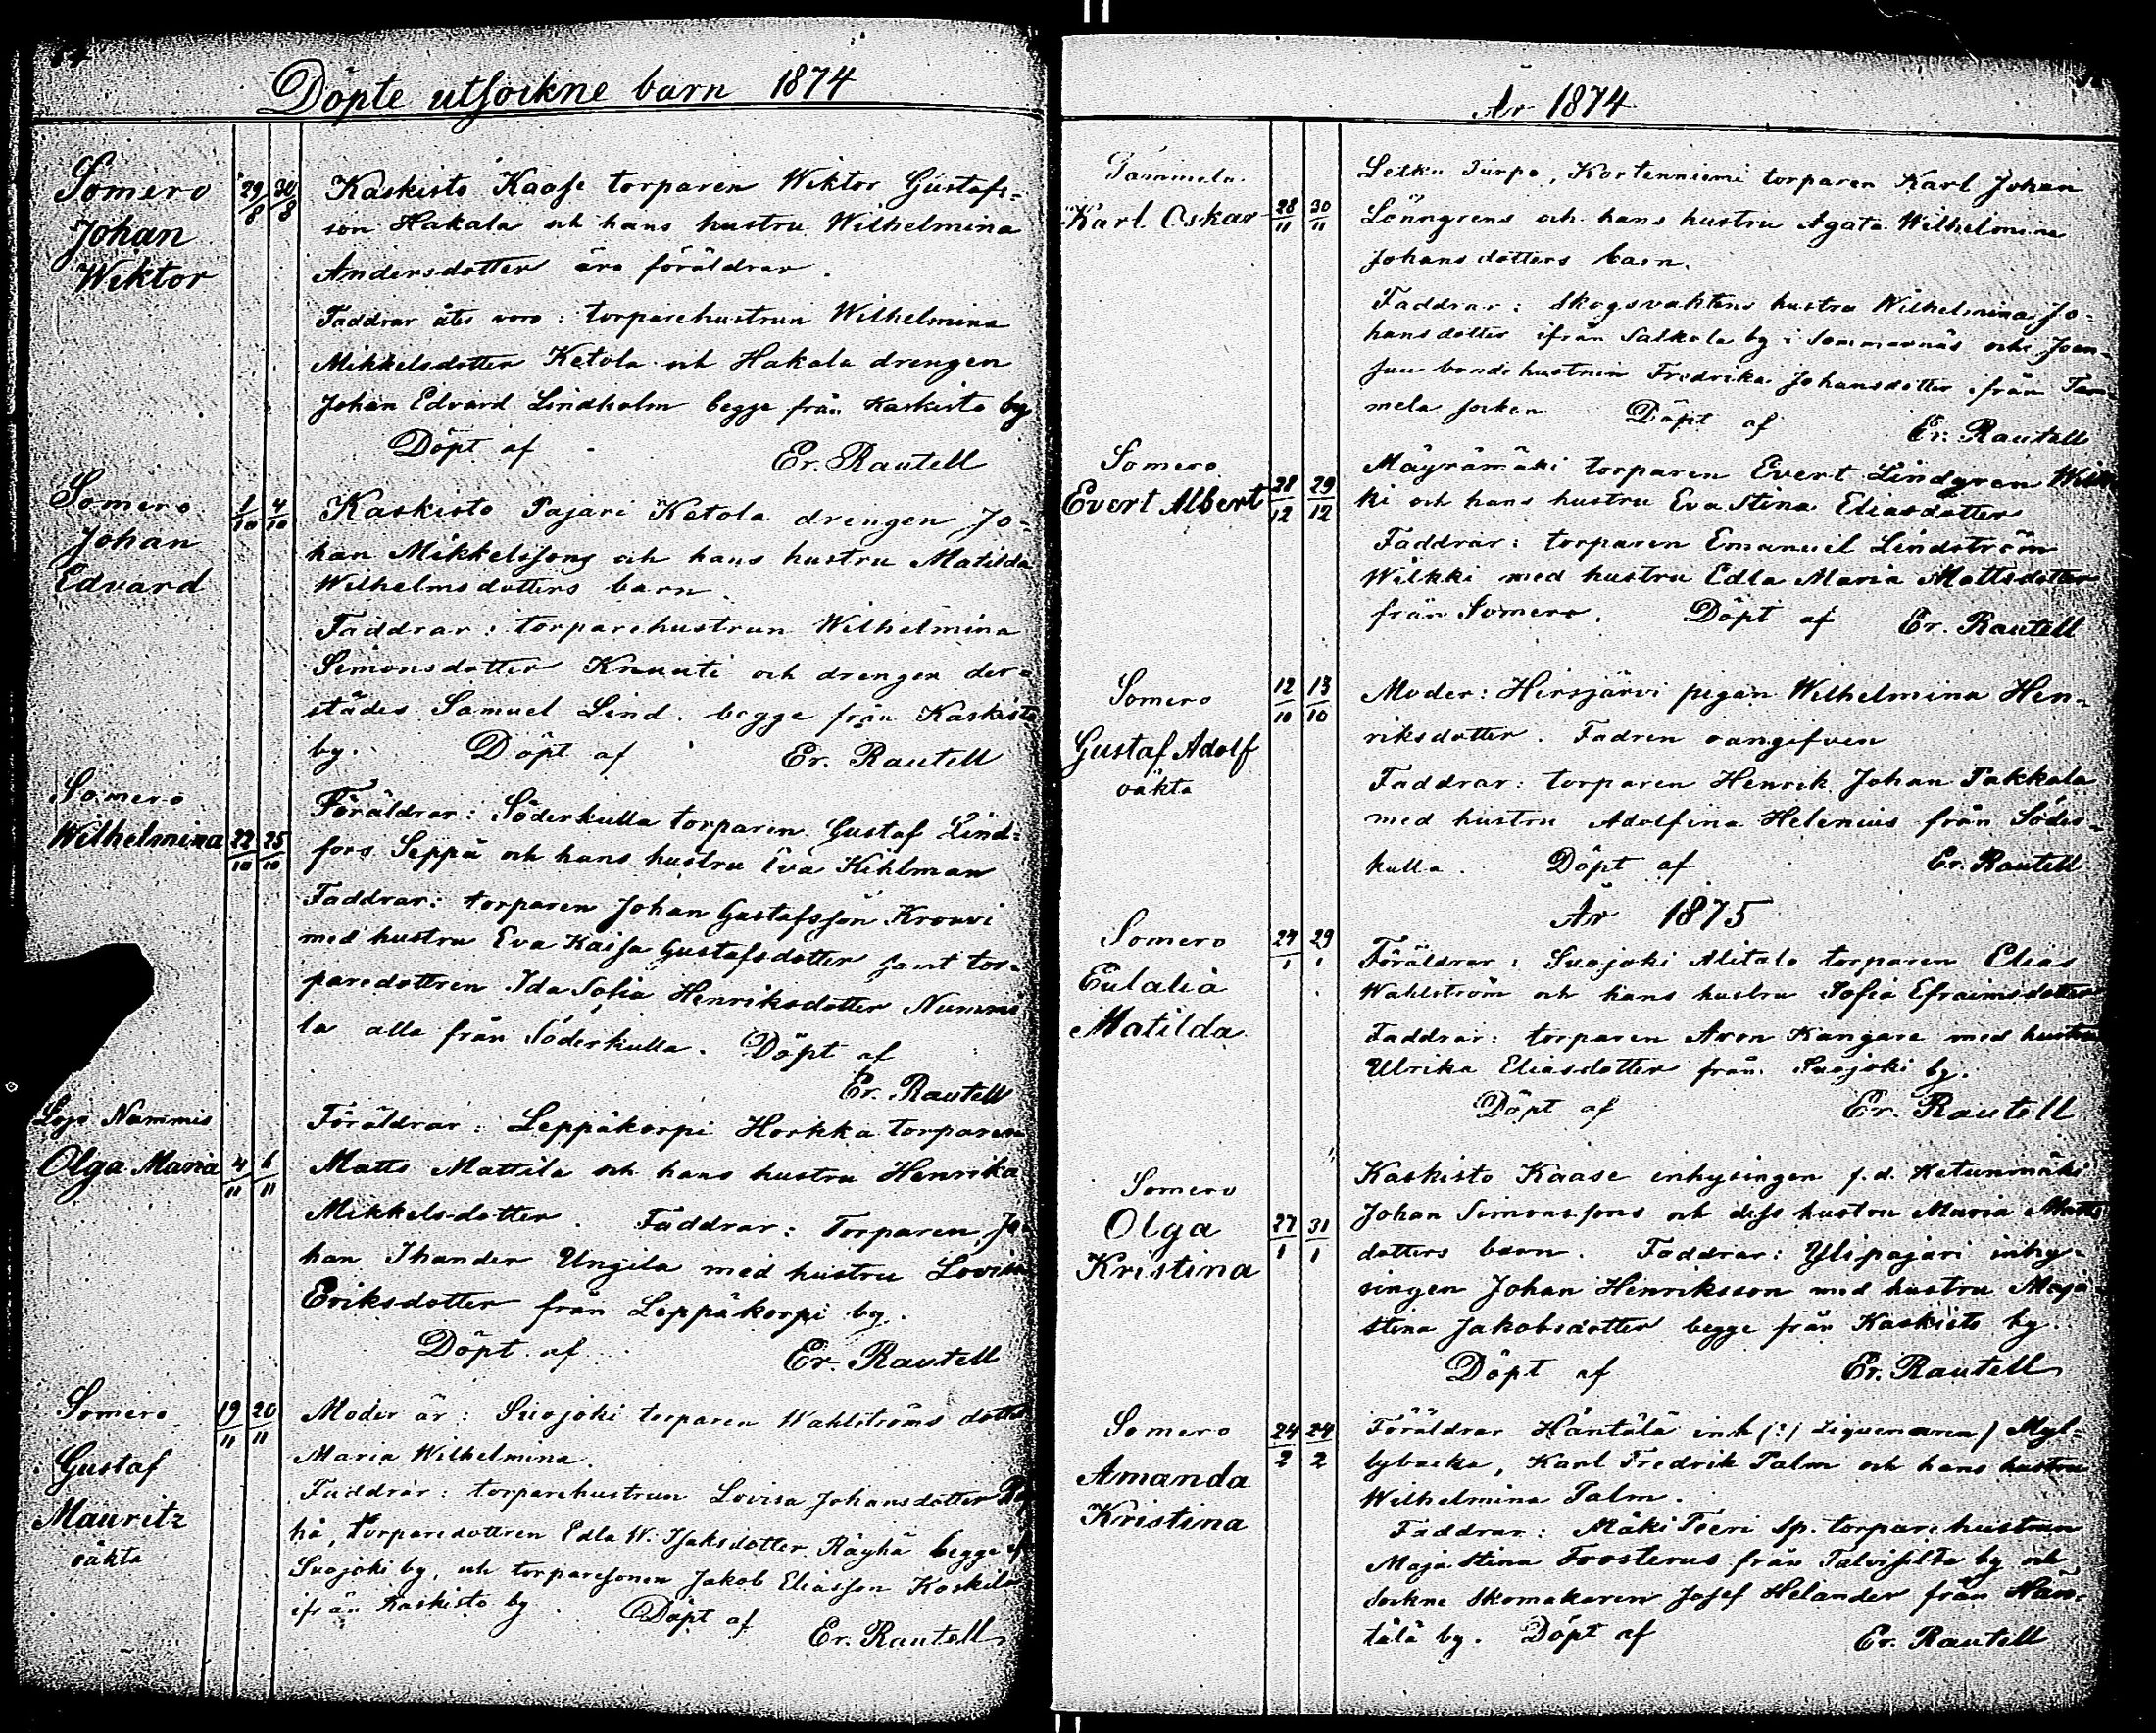 Döpte utsockne barn 1874
Somero 29/8 30/8 Kaskisto Kaase torparen Wiktor Gustafs-
Johan son Hakala och hans hustru Wilhelmina
Wiktor Andersdotter äro föräldrar.
Faddrar åter voro: torparehustrun Wilhelmina
Mikkelsdotter Ketola och Hakala drengen
Johan Edvard Lindholm begge från Kaskisto by
Döpt af Er. Rautell
Somero 1/10 4/10 Kaskisto Pajari Ketola drengen Jo-
Johan han Mikkelssons och hans hustru Matilda
Edvard Wilhelmsdotters barn.
Faddrar: torparehustrun Wilhelmina
Simonsdotter Knuuti och drengen der-
städes Samuel Lind. begge från Kaskisto
by. Döpt af Er. Rautell
Somero Föräldrar: Söderkulla torparen Gustaf Lind-
Wilhelmina 22/10 25/10 fors Seppä och hans hustru Eva Kihlman
Faddrar: torparen Johan Gustafsson Krouvi
med hustru Eva Kaisa Gustafsdotter samt tor-
paredottren Ida Sofia Henriksdotter Nummi
la alla från Söderkulla. Döpt af
Er. Rautell
Lojo Nummis Föräldrar: Leppäkorpi Horkka torparen
Olga Maria 4/11 6/11 Matts Mattila och hans hustru Henrika
Mikkelsdotter. Faddrar: Torparen Jo-
han Ihander Ungila med hustru Lovisa
Eriksdotter från Leppäkorpi by.
Döpt af Er. Rautell
Somero 19/11 20/11 Moder är: Suojoki torparen Wahlströms dotter
Gustaf Maria Wilhelmina.
Mauritz Faddrar: torparehustrun Lovisa Johansdotter
oäkta hä, torparedottren Edla W. Isaksdotter Räyhä begge af
Suojoki by, och torparesonen Jakob Eliasson Koskila
ifrån Kaskisto by. Döpt af Er. Rautell
År 1874
Tammela Letku Turpo, Kortenniemi torparen Karl Johan
Karl Oskar 28/11 30/11 Lönngrens och hans hustru Agata Wilhelmina
Johansdotters barn.
Faddrar: Skogsvaktens hustru Wilhelmina Jo-
hansdotter ifrån Salkola by i Sommarnäs och Joen-
suu bondehustrun Fredrika Johansdotter ifrån Tam-
mela socken Döpt af Er. Rautell
Somero Mäyrämäki torparen Evert Lindgren Wilk
Evert Albert 28/12 29/12 ki och hans hustru Eva Stina Eliasdotter
Faddrar: torparen Emanuel Lindström
Wilkki med hustru Edla Maria Mattsdotter
från Somero. Döpt af Er. Rautell
Somero 12/10 13/10 Moder: Hirsjärvi pigan Wilhelmina Hen-
Gustaf Adolf riksdotter. Fadren oangifven
oäkta Faddrar: torparen Henrik Johan Pakkala
med hustru Adolfina Helenius från Söder-
kulla. Döpt af Er. Rautell
År 1875
Somero 27/1 29/1 Föräldrar: Suojoki Alitalo torparen Elias
Eulalia Wahlström och hans hustru Sofia Efraimsdotter
Matilda Faddrar: torparen Aron Kangare med hustru
Ulrika Eliasdotter från Suojoki by.
Döpt af Er. Rautell
Somero Kaskisto Kaase inhysingen f.d. Ketunmäki
Olga 27/1 31/1 Johan Simonssons och dess hustru Maria Matts
Kristina dotters barn. Faddrar: Ylipajari inhy-
singen Johan Henriksson med hustru Maja
Stina Jakobsdotter begge från Kaskisto by.
Döpt af Er. Rautell
Somero 24/2 24/2 Föräldrar Häntälä inh (?) Myl-
Amanda lybacka, Karl Fredrik Palm och hans hustru
Kristina Wilhelmina Palm.
Faddrar: Mäki Teeri Sp. torparehustrun
Maja Stina Frosterus från Talvisilta by och
Sockne skomakaren Josef Helander från Hän-
tälä by. Döpt af Er. Rautell